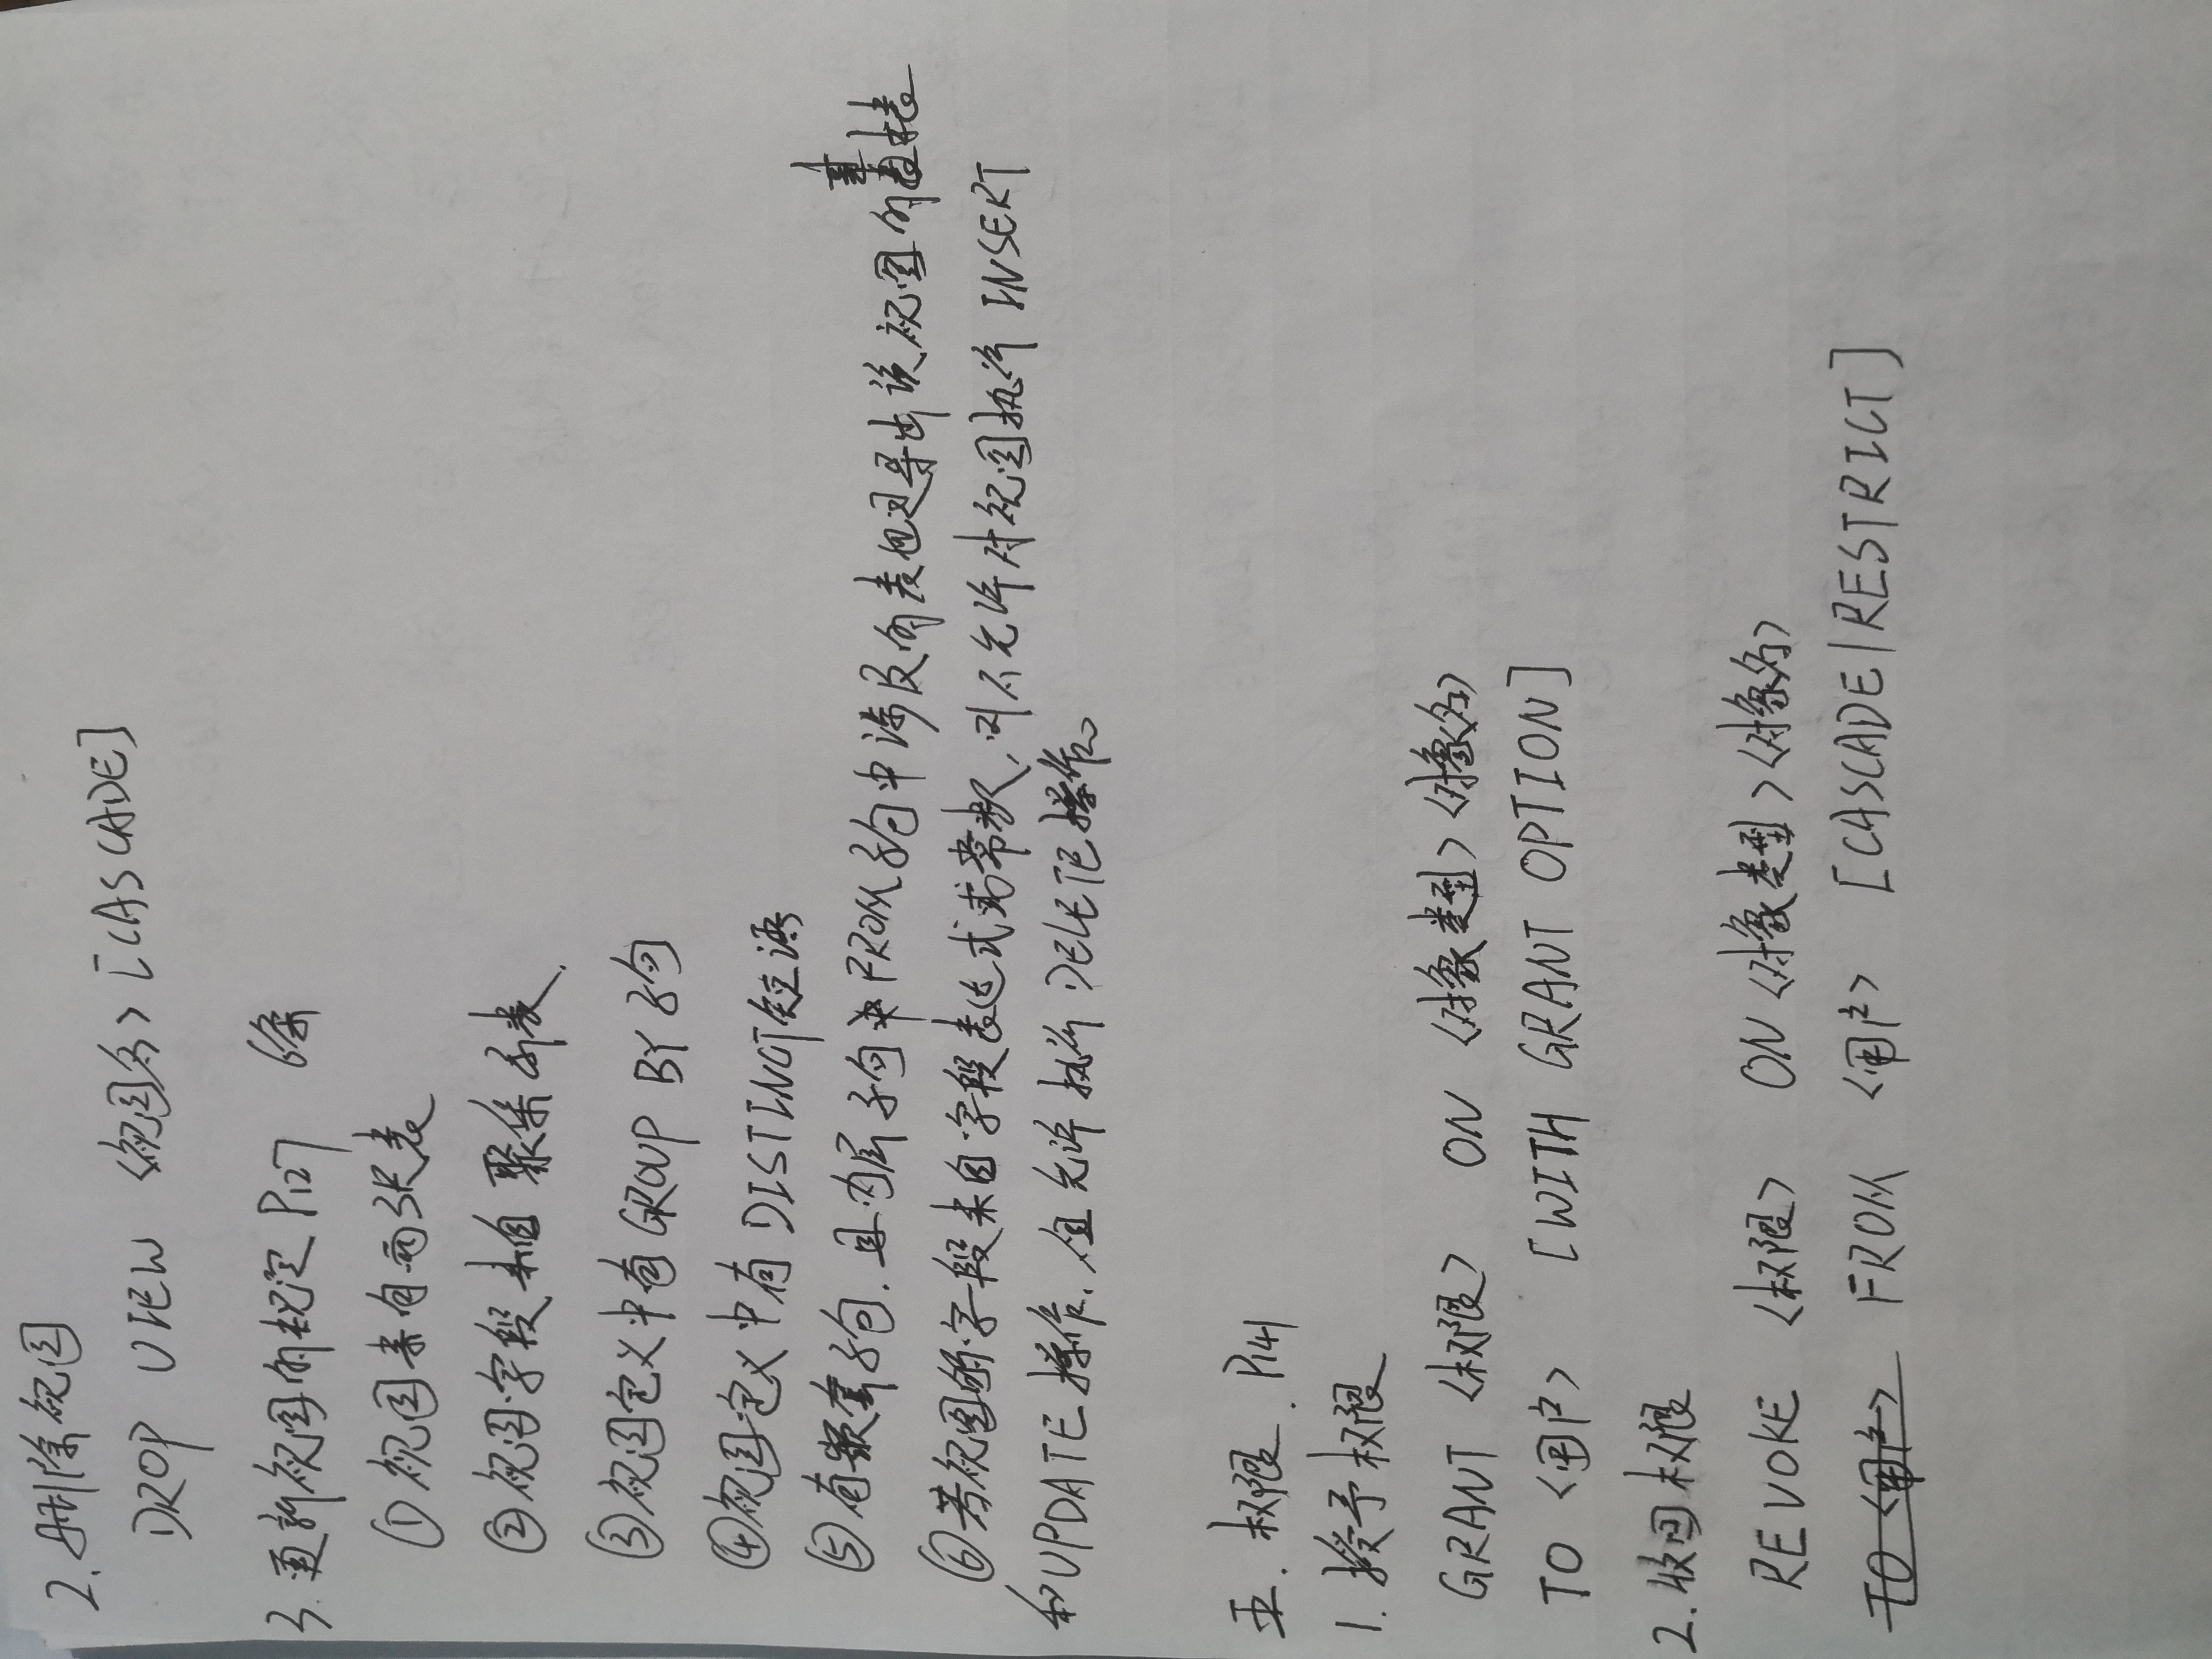 2. 删除视图
DROP VIEW <视图名> [CASCADE]
3. 更新视图的规定 P127 6条
① 视图来自两张表
② 视图字段来自聚集
③ 视图定义中有 GROUP BY 子句
④ 视图定义中有 DISTINCT 短语
⑤ 有嵌套子句, 且内层子句中 FROM 子句中涉及的表也是导出该视图的基本表
⑥ 若视图的字段来自字段表达式或常数, 则不允许对视图执行 INSERT
和 UPDATE 操作, 但允许执行 DELETE 操作。
五. 权限. P141
1. 授予权限
GRANT <权限> ON <对象类型> <对象名>
TO <用户> [WITH GRANT OPTION]
2. 收回权限
REVOKE <权限> ON <对象类型> <对象名>
TO <用户> FROM <用户> [CASCADE|RESTRICT]